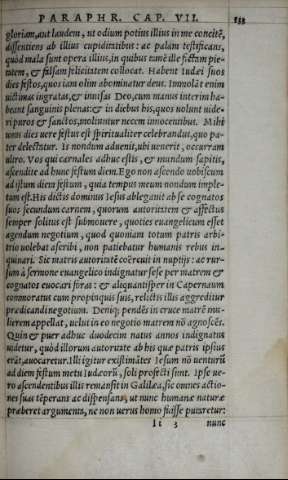 PARAPHR. CAP. VII. 133
gloriam, aut laudem, ut odium potius illius in me concitē,
dissentiens ab illius cupiditatibus: ac palam testificans,
quòd mala sunt opera illius, in quibus tamē ille fictam pie-
tatem, & falsam felicitatem collocat. Habent Iudæi suos
dies festos, quos iam olim abominatur deus. Immolāt enim
uictimas ingratas, & inuisas Deo, cum manus interim ha-
beant sanguinis plenas: & in diebus his, quos uolunt uide-
ri puros & sanctos, moliuntur necem innocentibus. Mihi
unus dies uere festus est spiritualiter celebrandus, quo pa-
ter delectatur. Is nondum aduenit, ubi uenerit, occurram
ultro. Vos qui carnales adhuc estis, & mundum sapitis,
ascendite ad hunc festum diem. Ego non ascendo uobiscum
ad istum diem festum, quia tempus meum nondum imple-
tum est. His dictis dominus Iesus ablegauit ab se cognatos
suos secundum carnem, quorum autoritatem & affectus
semper solitus est submouere, quoties euangelicum esset
agendum negotium, quod quoniam totum patris arbi-
trio uolebat ascribi, non patiebatur humanis rebus in-
quinari. Sic matris autoritatē coërcuit in nuptijs: ac rur-
sum à sermone euangelico indignatur sese per matrem &
cognatos euocari foras: & aliquantisper in Capernaum
commoratus cum propinquis suis, relictis illis aggreditur
prædicandi negotium. Deniq; pendēs in cruce matrē mu-
lierem appellat, uelut in eo negotio matrem nō agnoscēs.
Quin & puer adhuc duodecim natus annos indignatus
uidetur, quòd illorum autoritate ab his quæ patris ipsius
erāt, auocaretur. Illi igitur existimātes Iesum nō uenturū
ad diem festum metu Iudæorū, soli profecti sunt. Ipse ue-
ro ascendentibus illis remansit in Galilæa, sic omnes actio-
nes suas tēperans ac dispensans, ut nunc humanæ naturæ
præberet argumenta, ne non uerus homo fuisse putaretur:
Ii 3 nunc